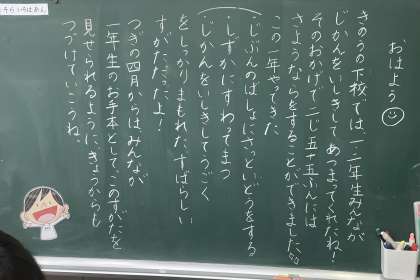 おはよう
きのうの下校では、一二年生みんなが
じかんをいしきしてあつまってくれたね!
そのおかげで二じ五十五ふんには
さようならをすることができました。
この一年やってきた
・じぶんのばしょにさっといどうをする
・しずかにすわってまつ
・じかんをいしきしてうごく
をしっかりまもれた、すばらしい
すがただったよ!
つぎの四月からはみんなが
一年生のお手本として、このすがたを
見せられるように、きょうからも
つづけていこうね。